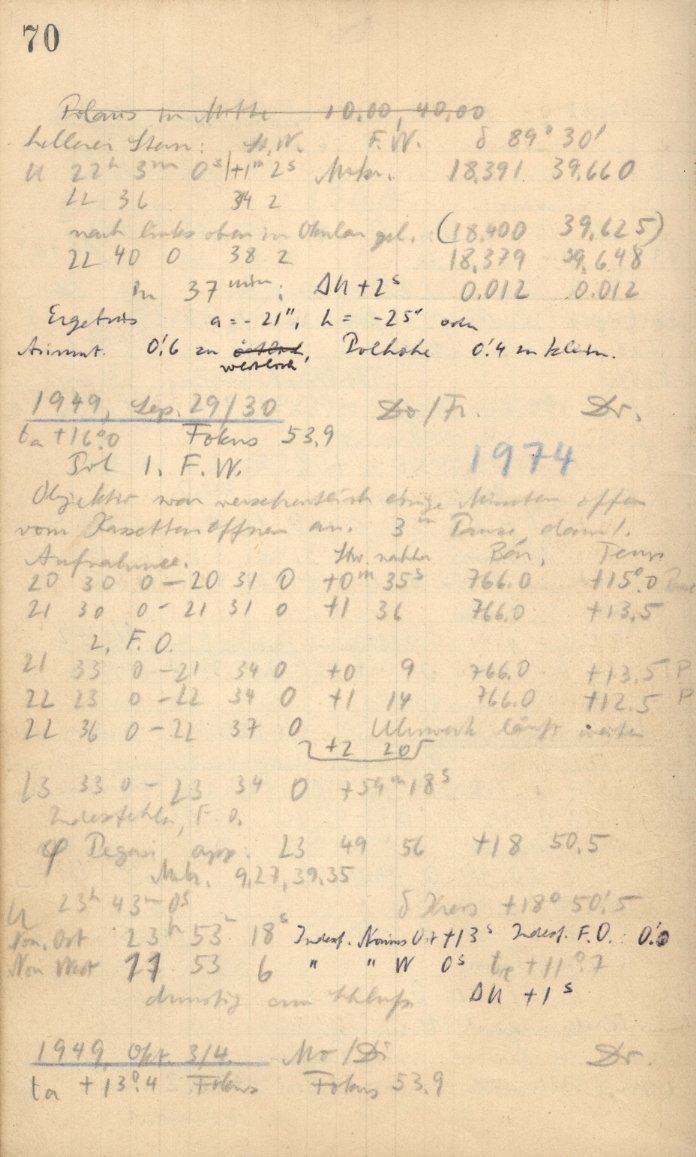 70
Polaris in Mitte 10,00, 40,00
hellerer Stern: St.W. F.W. δ 89° 30'
U 22h 3m 0s +1m 2s Mikr. 18,391 39,660
22 36 34 2
nach links oben im Okular gel. (18,400 39,625)
22 40 0 38 2 18,379 39,648
In 37 min: ΔU +2s 0.012 0.012
Ergebnis a = -21", h = -25" oder
Azimut 0'.6 zu östlich, Polhöhe 0'.4 zu klein.
westlich
1949, Sep. 29/30 Do/Fr. Dr.
ta +16°.0 Fokus 53.9
Pol 1. F.W. 1974
Objektiv war versehentlich einige Minuten offen
vom Kassettenöffnen an. 3m Pause, dann 1.
Aufnahme. Bar. Temp
20 30 0 – 20 31 0 +0m 35s 766.0 +15°.0
21 30 0 – 21 31 0 +1 36 766.0 +13.5
2. F.O.
21 33 0 – 21 34 0 +0 9 766.0 +13.5 P
22 23 0 – 22 34 0 +1 14 766.0 +12.5 P
22 36 0 – 22 37 0 Uhrwerk läuft weiter
+2 20
23 33 0 – 23 34 0 +59m 18s
Indexfehler, F.O.
φ Pegasi app. 23 49 56 +18 50.5
Mikr. 9,27, 39.35
U 23h 43m 0s δ Kreis +18° 50'.5
Non. Ost 23h 53m 18s Indexf. Nonius Ost +13s Indexf. F.O.: 0'.0
Non West 11 53 6 " " W 0s ta +11°.7
dunstig am Schluß ΔU +1s
1949, Okt. 3/4. Mo/Di Dr.
ta +13°.4 Fokus Fokus 53.9